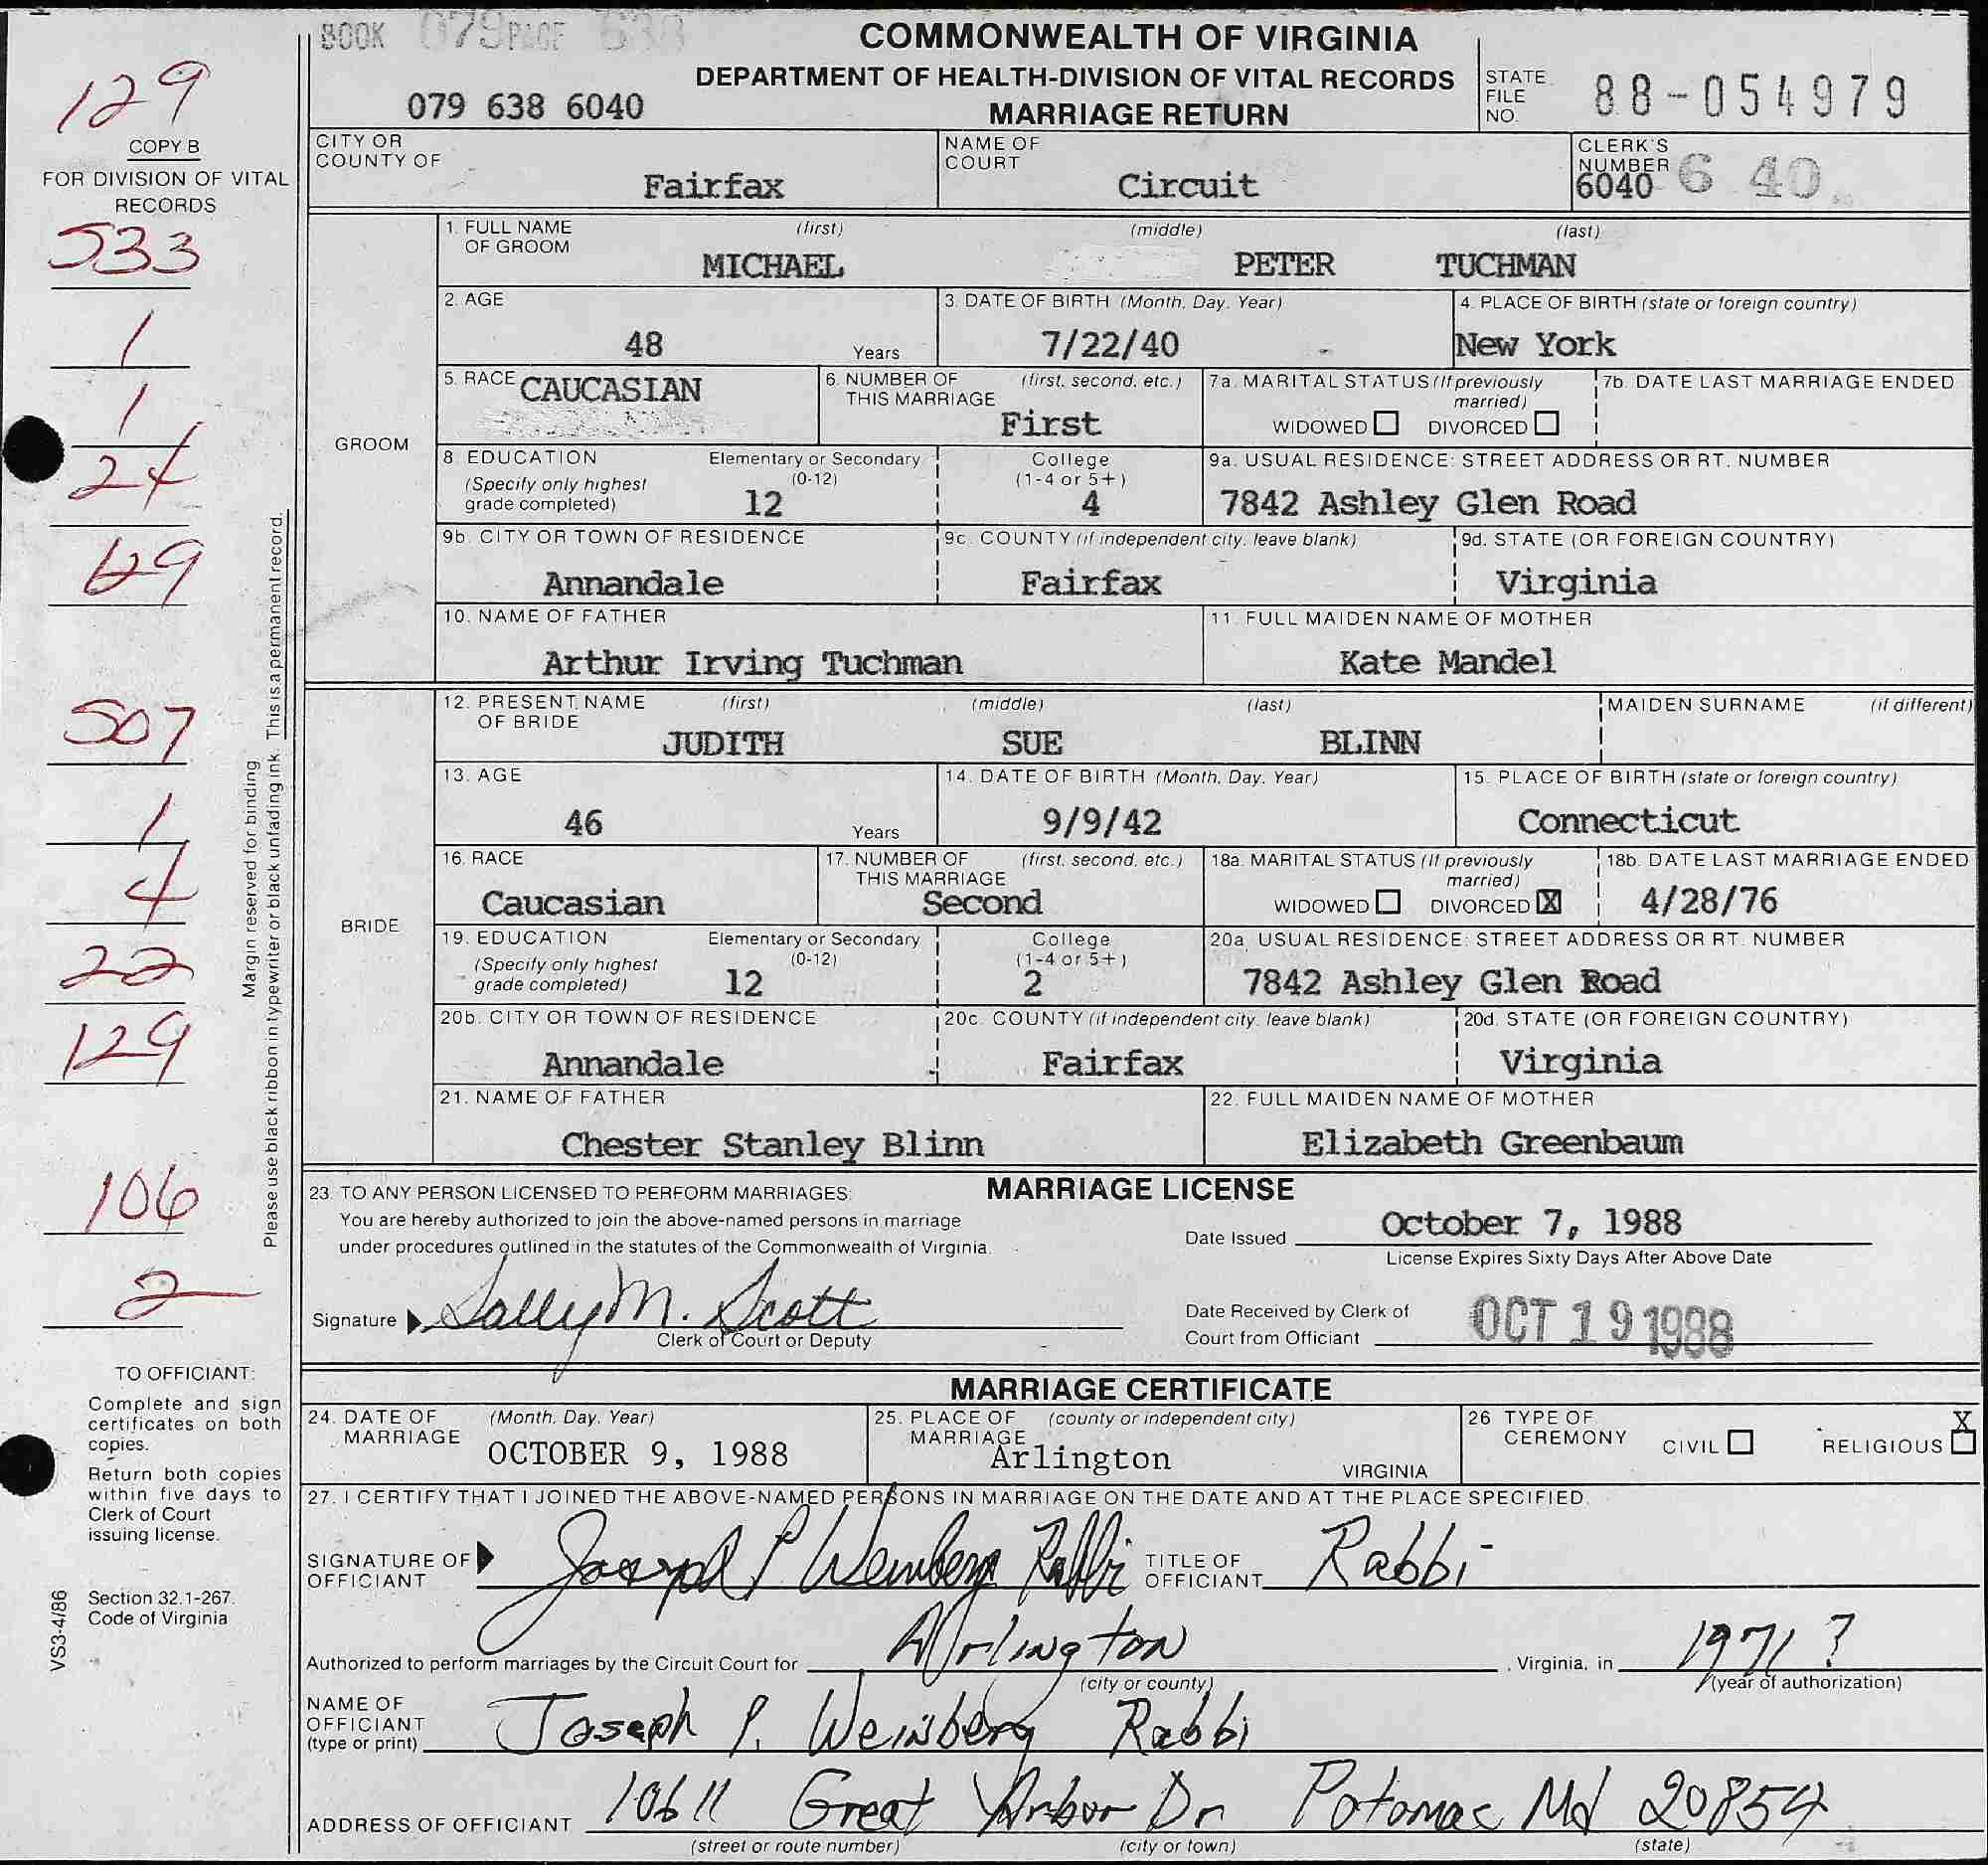 BOOK 079 PAGE 638
COMMONWEALTH OF VIRGINIA
DEPARTMENT OF HEALTH-DIVISION OF VITAL RECORDS
MARRIAGE RETURN
079 638 6040
STATE FILE NO. 88-054979
129
COPY B
FOR DIVISION OF VITAL RECORDS
533
1
1
24
129
507
1
4
22
129
106
2
Margin reserved for binding
Please use black ribbon in typewriter or black unfading ink. This is a permanent record.
CITY OR COUNTY OF Fairfax
NAME OF COURT Circuit
CLERK'S NUMBER 6040 6 40
GROOM
1. FULL NAME OF GROOM (first) MICHAEL (middle) PETER (last) TUCHMAN
2. AGE 48 Years
3. DATE OF BIRTH (Month, Day, Year) 7/22/40
4. PLACE OF BIRTH (state or foreign country) New York
5. RACE CAUCASIAN
6. NUMBER OF THIS MARRIAGE (first, second, etc.) First
7a. MARITAL STATUS (If previously married) WIDOWED DIVORCED
7b. DATE LAST MARRIAGE ENDED
8. EDUCATION (Specify only highest grade completed) Elementary or Secondary (0-12) 12 College (1-4 or 5+) 4
9a. USUAL RESIDENCE: STREET ADDRESS OR RT. NUMBER 7842 Ashley Glen Road
9b. CITY OR TOWN OF RESIDENCE Annandale
9c. COUNTY (if independent city, leave blank) Fairfax
9d. STATE (OR FOREIGN COUNTRY) Virginia
10. NAME OF FATHER Arthur Irving Tuchman
11. FULL MAIDEN NAME OF MOTHER Kate Mandel
BRIDE
12. PRESENT NAME OF BRIDE (first) JUDITH (middle) SUE (last) BLINN
MAIDEN SURNAME (if different)
13. AGE 46 Years
14. DATE OF BIRTH (Month, Day, Year) 9/9/42
15. PLACE OF BIRTH (state or foreign country) Connecticut
16. RACE Caucasian
17. NUMBER OF THIS MARRIAGE (first, second, etc.) Second
18a. MARITAL STATUS (If previously married) WIDOWED DIVORCED X
18b. DATE LAST MARRIAGE ENDED 4/28/76
19. EDUCATION (Specify only highest grade completed) Elementary or Secondary (0-12) 12 College (1-4 or 5+) 2
20a. USUAL RESIDENCE: STREET ADDRESS OR RT. NUMBER 7842 Ashley Glen Road
20b. CITY OR TOWN OF RESIDENCE Annandale
20c. COUNTY (if independent city, leave blank) Fairfax
20d. STATE (OR FOREIGN COUNTRY) Virginia
21. NAME OF FATHER Chester Stanley Blinn
22. FULL MAIDEN NAME OF MOTHER Elizabeth Greenbaum
MARRIAGE LICENSE
23. TO ANY PERSON LICENSED TO PERFORM MARRIAGES:
You are hereby authorized to join the above-named persons in marriage
under procedures outlined in the statutes of the Commonwealth of Virginia.
Date Issued October 7, 1988
License Expires Sixty Days After Above Date
Signature Sally M. Scott
Clerk of Court or Deputy
Date Received by Clerk of Court from Officiant OCT 19 1988
MARRIAGE CERTIFICATE
24. DATE OF MARRIAGE (Month, Day, Year) OCTOBER 9, 1988
25. PLACE OF MARRIAGE (county or independent city) Arlington VIRGINIA
26 TYPE OF CEREMONY CIVIL RELIGIOUS X
27. I CERTIFY THAT I JOINED THE ABOVE-NAMED PERSONS IN MARRIAGE ON THE DATE AND AT THE PLACE SPECIFIED.
SIGNATURE OF OFFICIANT Joseph P Weinberg Rabbi
TITLE OF OFFICIANT Rabbi
Authorized to perform marriages by the Circuit Court for Arlington (city or county), Virginia, in 1971 ? (year of authorization)
NAME OF OFFICIANT (type or print) Joseph P. Weinberg Rabbi
ADDRESS OF OFFICIANT 10611 Great Arbor Dr Potomac Md 20854
(street or route number) (city or town) (state)
TO OFFICIANT:
Complete and sign
certificates on both
copies.
Return both copies
within five days to
Clerk of Court
issuing license.
Section 32.1-267.
Code of Virginia
VS3-4/86